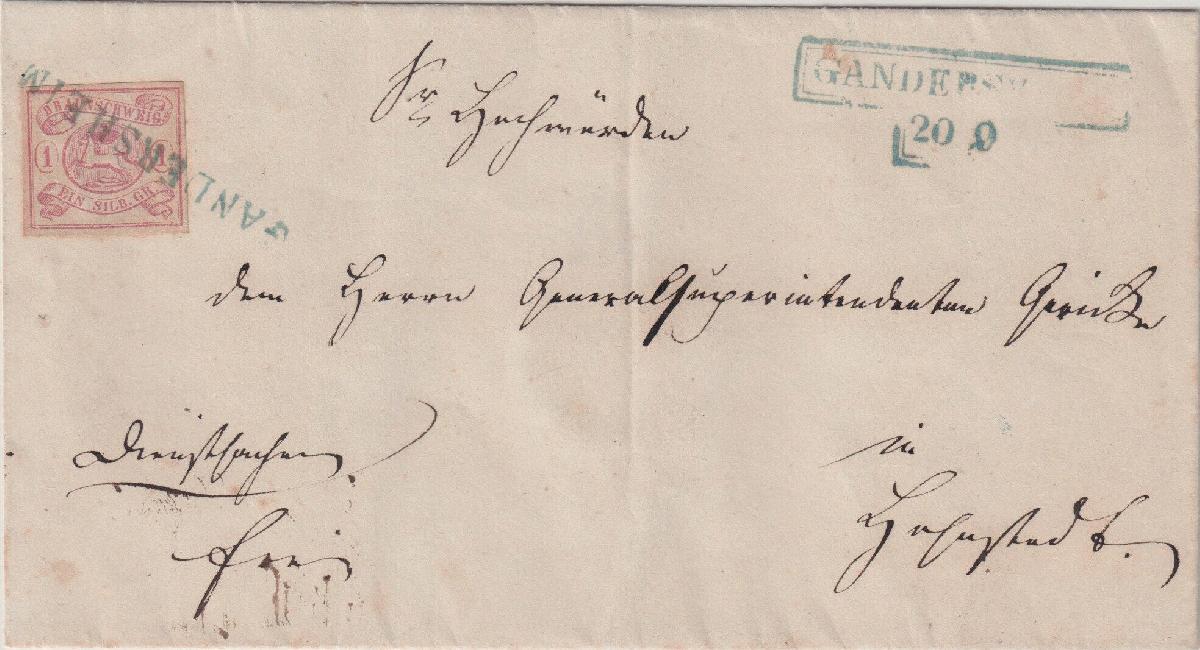 GANDERSHEIM
BRAUNSCHWEIG
1 1
EIN SILB. GR.
GANDERSH
20 9
Sr Hochwürden
dem Herrn Generalsuperintendenten Gericke
Dienstsachen
frei
in
Hohnstedt.